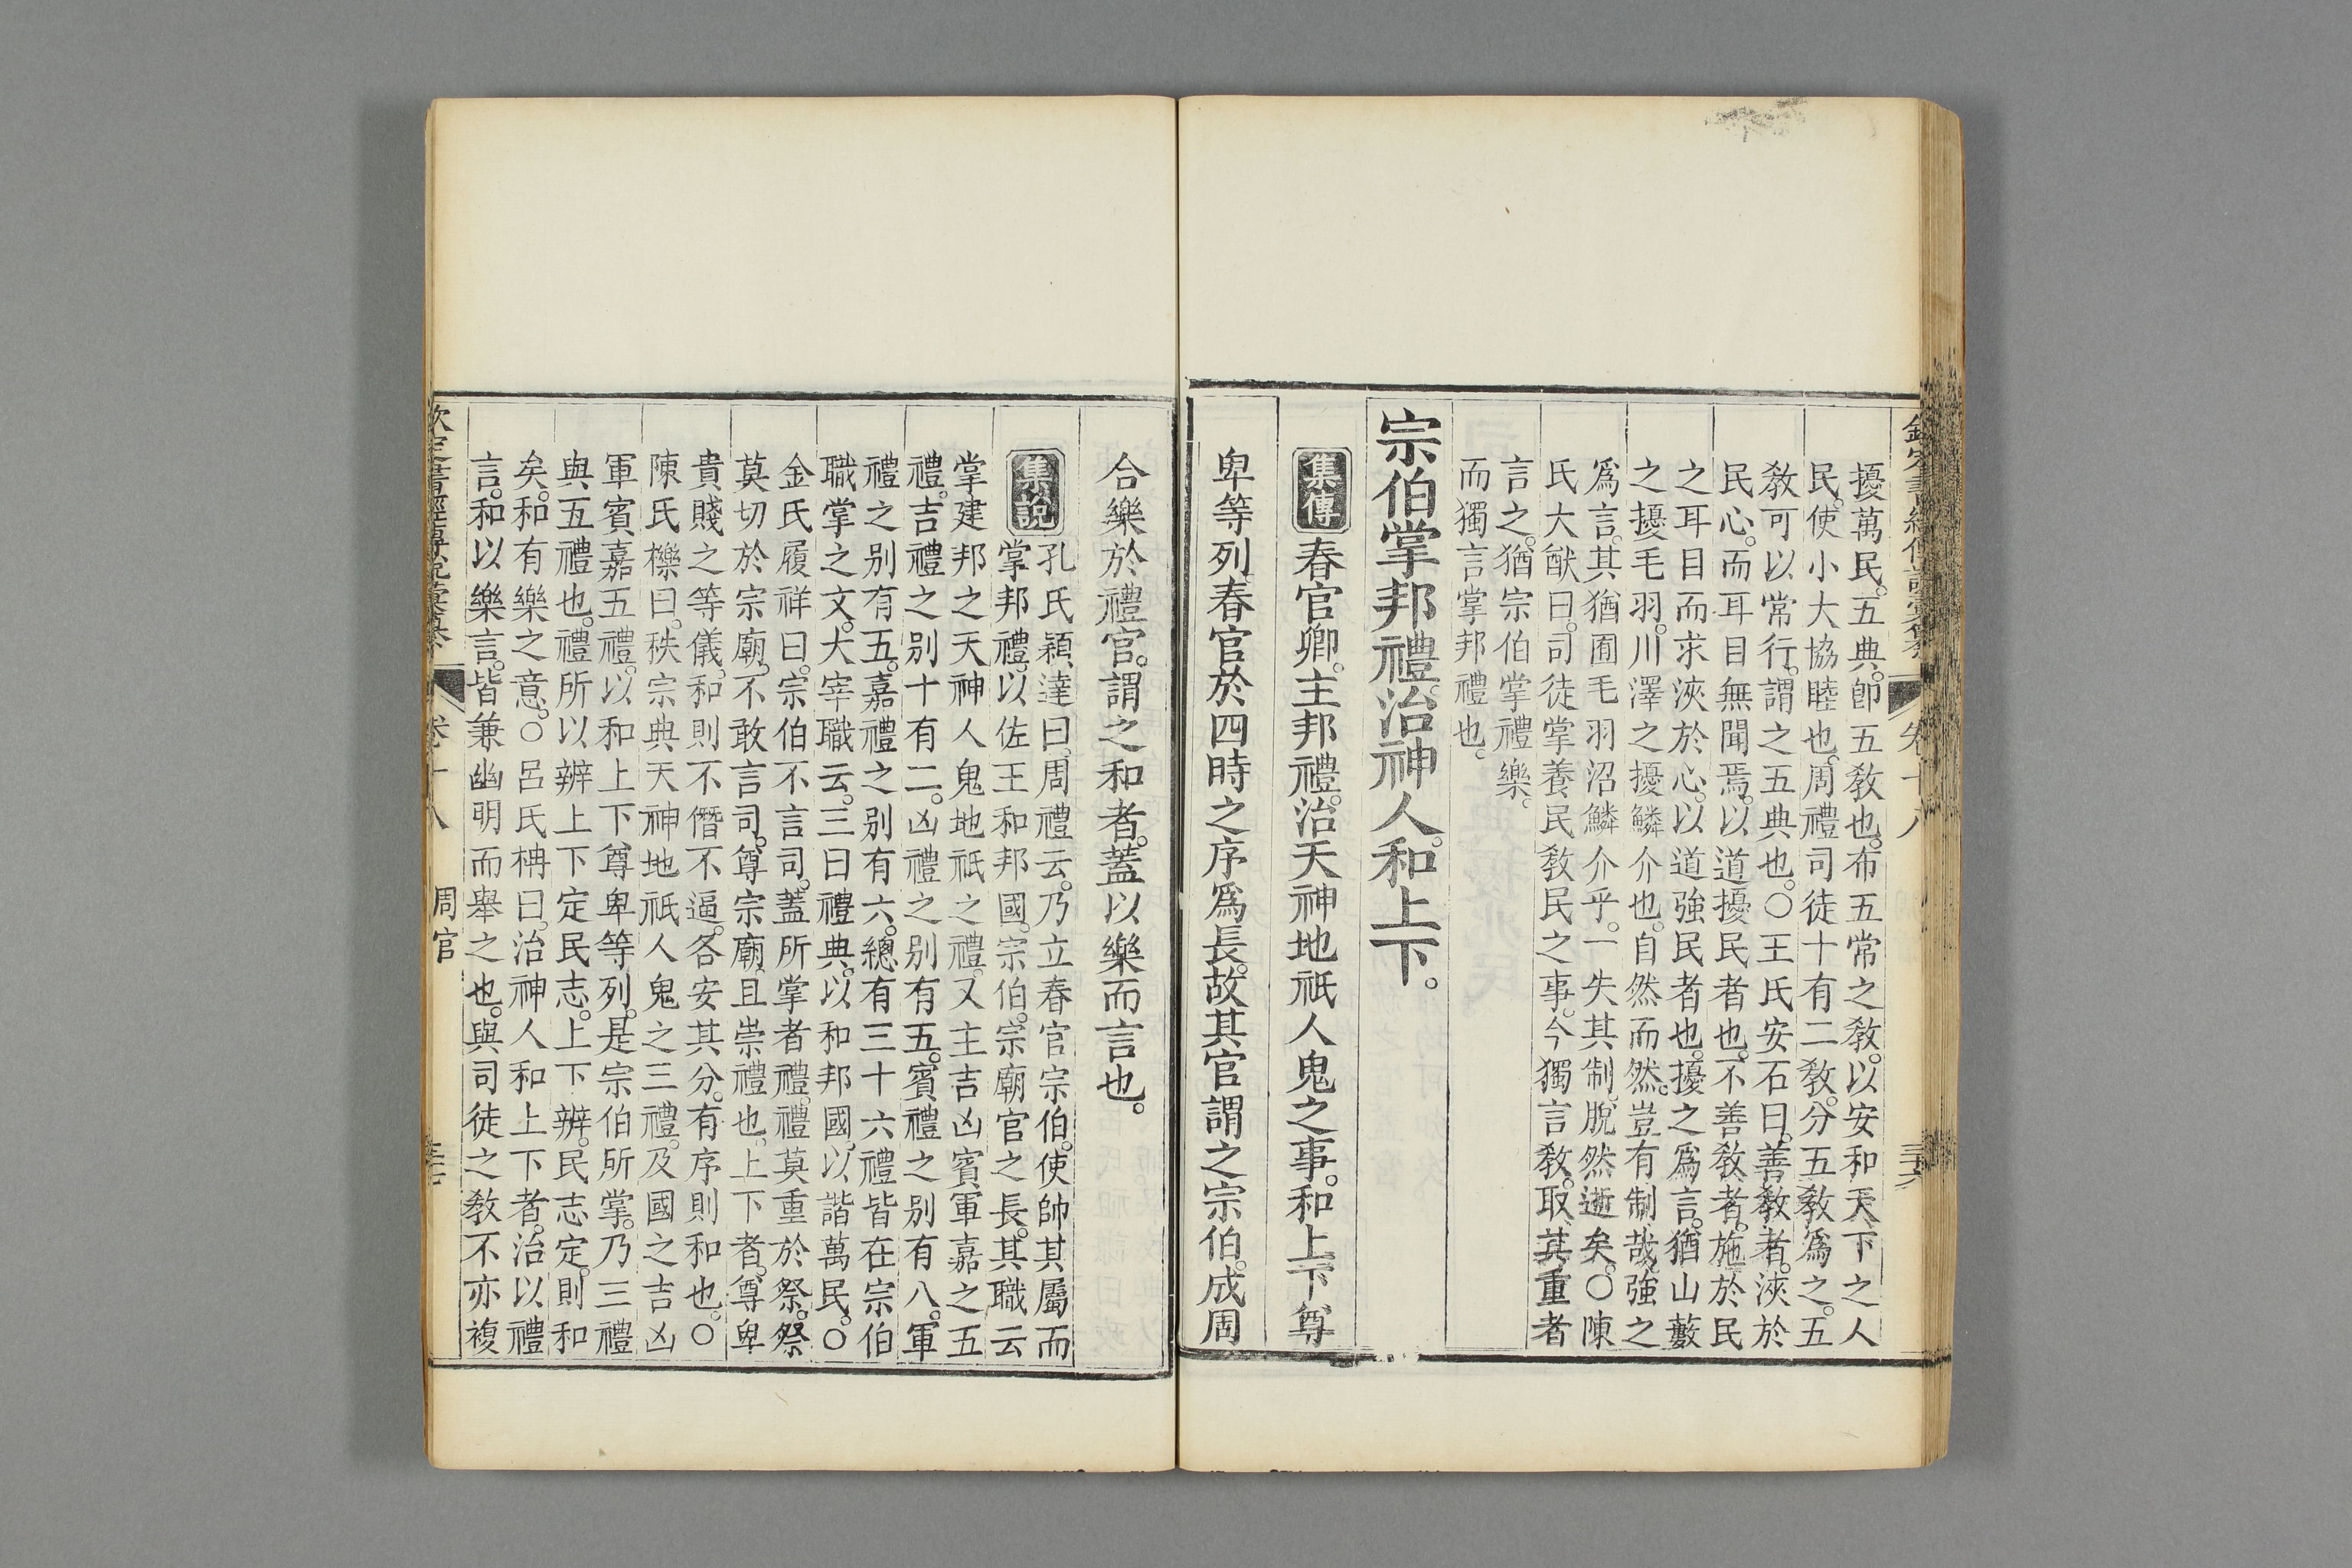 擾萬民。五典。卽五敎也。布五常之敎。以安和天下之人
民。使小大協睦也。周禮司徒十有二敎。分五敎爲之。五
敎可以常行。謂之五典也。○王氏安石曰。善敎者。浹於
民心。而耳目無聞焉。以道擾民者也。不善敎者。施於民
之耳目而求浹於心。以道強民者也。擾之爲言。猶山藪
之擾毛羽。川澤之擾鱗介也。自然而然。豈有制哉。強之
爲言。其猶囿毛羽沼鱗介乎。一失其制。脫然逝矣。○陳
氏大猷曰。司徒掌養民敎民之事。今獨言敎。取其重者
言之。猶宗伯掌禮樂。
而獨言掌邦禮也。
宗伯掌邦禮。治神人。和上下。
集傳 春官卿。主邦禮。治天神地祇人鬼之事。和上下尊
卑等列。春官於四時之序爲長。故其官謂之宗伯。成周
合樂於禮官。謂之和者。蓋以樂而言也。
集說 孔氏穎達曰。周禮云。乃立春官宗伯。使帥其屬而
掌邦禮。以佐王和邦國。宗伯。宗廟官之長。其職云
掌建邦之天神人鬼地祇之禮。又主吉凶賓軍嘉之五
禮。吉禮之別十有二。凶禮之別有五。賓禮之別有八。軍
禮之別有五。嘉禮之別有六。總有三十六禮皆在宗伯
職掌之文。大宰職云。三曰禮典。以和邦國。以諧萬民。○
金氏履祥曰。宗伯不言司。蓋所掌者禮。禮莫重於祭。祭
莫切於宗廟。不敢言司。尊宗廟。且崇禮也。上下者。尊卑
貴賤之等儀。和則不僭不逼。各安其分。有序則和也。○
陳氏櫟曰。秩宗典天神地祇人鬼之三禮。及國之吉凶
軍賓嘉五禮。以和上下尊卑等列。是宗伯所掌。乃三禮
與五禮也。禮所以辨上下定民志。上下辨。民志定。則和
矣。和有樂之意。○呂氏柟曰。治神人和上下者。治以禮
言。和以樂言。皆兼幽明而舉之也。與司徒之敎不亦複
卷十八 周官